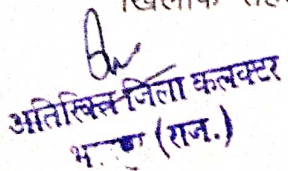 खिलाफ
अतिरिक्त जिला कलक्टर
(राज.)